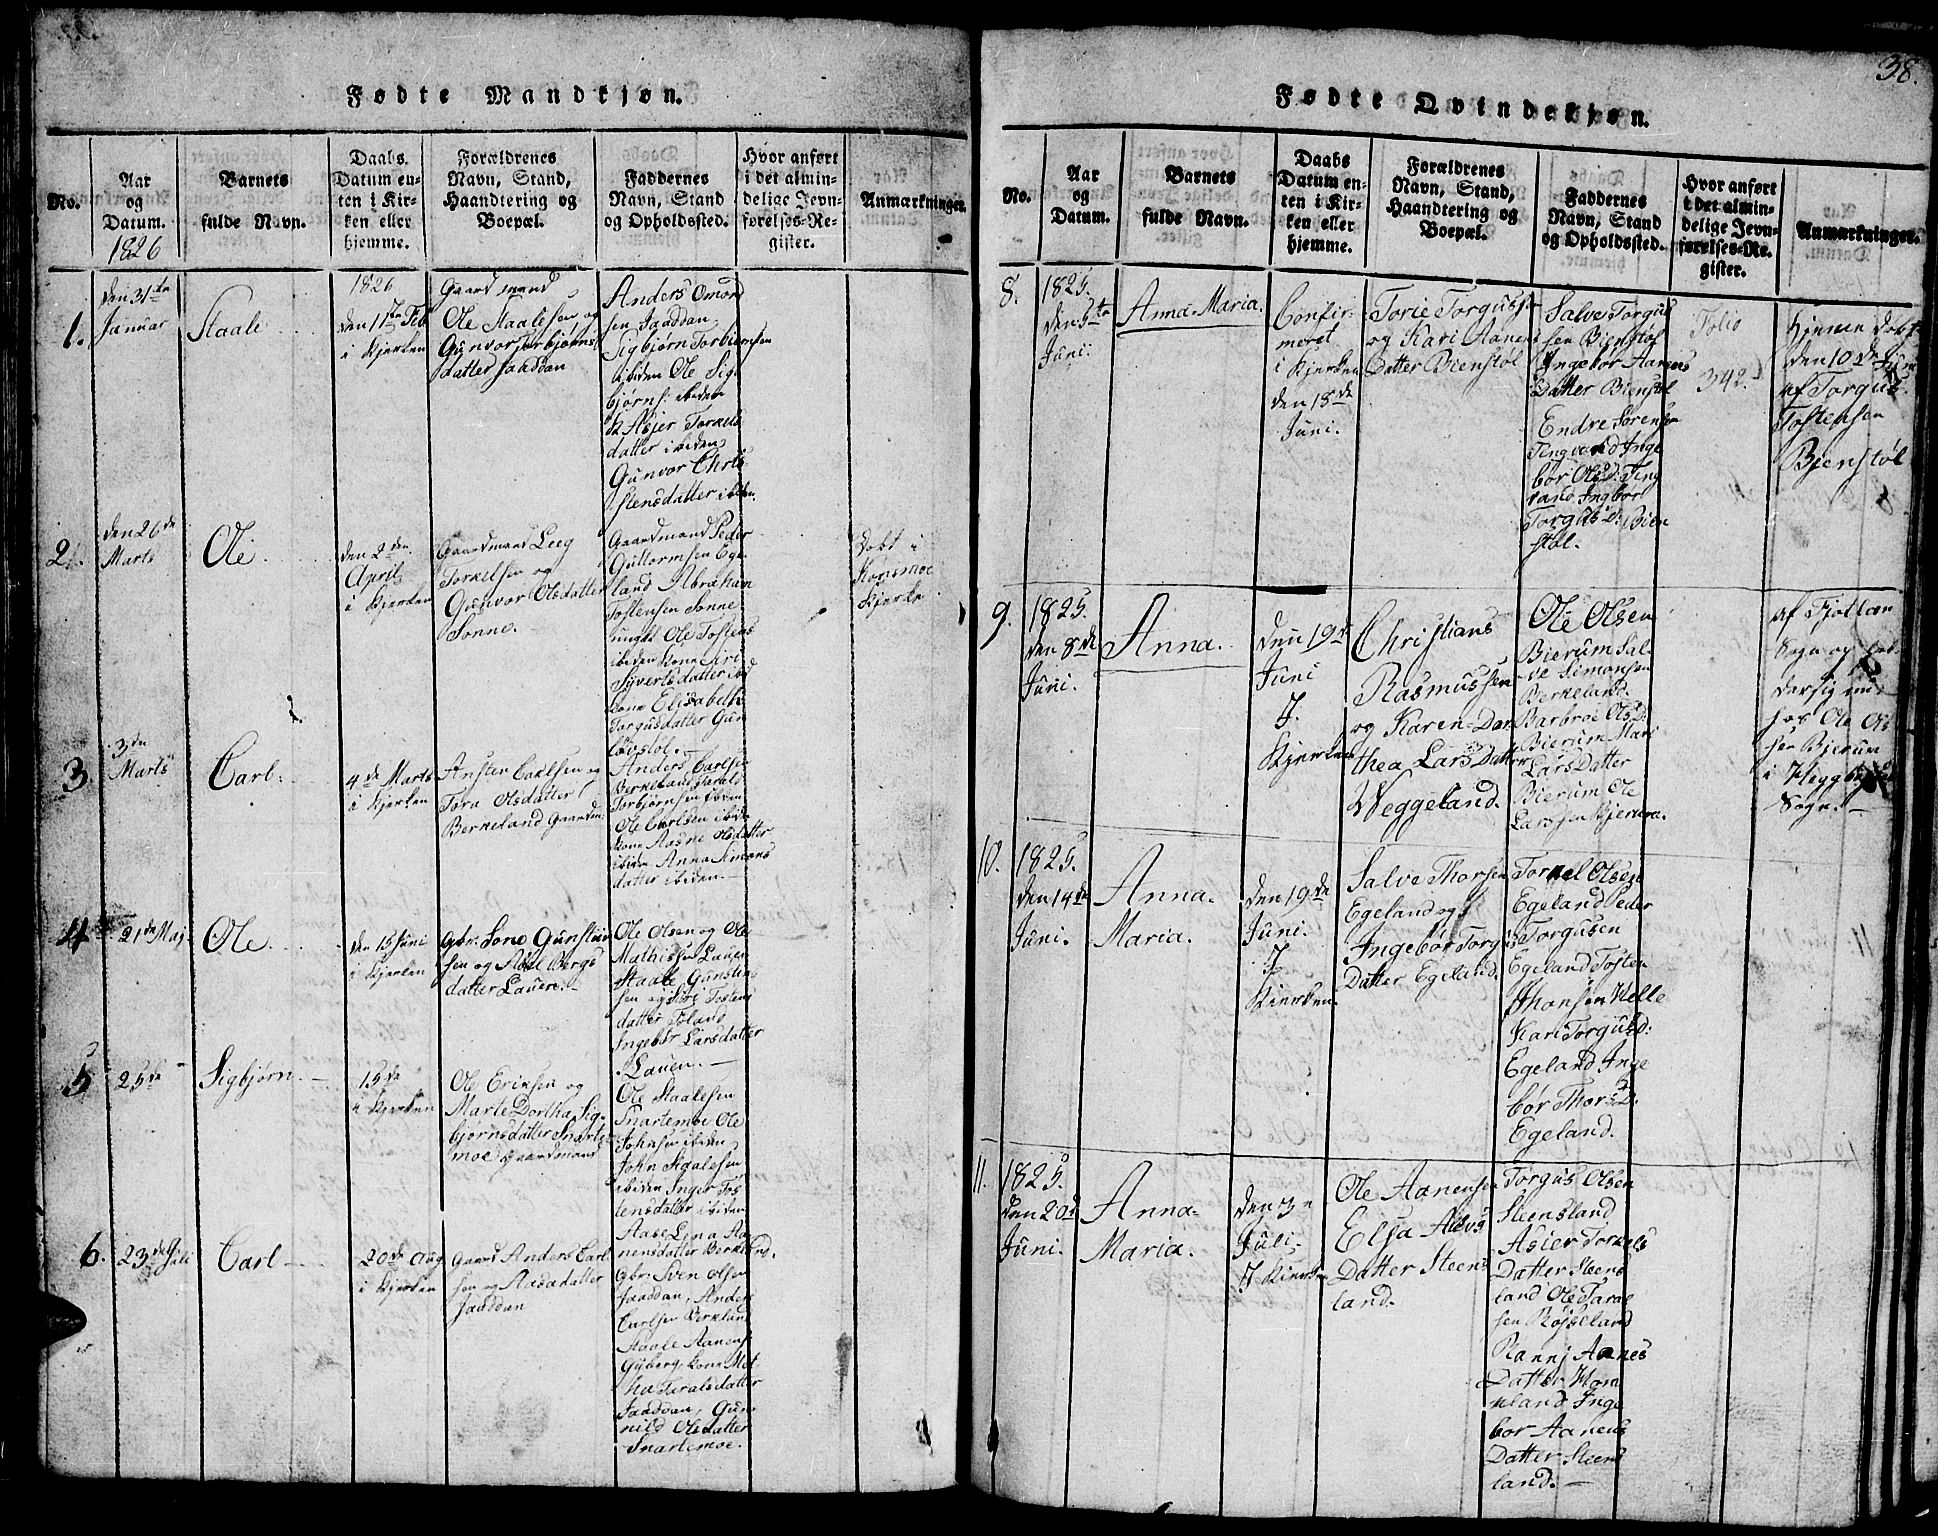 Fødte Mandkjøn.
No.
Aar
og
Datum.
1826
Barnets
fulde Navn.
Daabs-
Datum en-
ten i Kir-
ken eller
hjemme.
Forældrenes
Navn, Stand,
Haandtering og
Boepæl.
Faddernes
Navn, Stand
og Opholdssted.
Hvor anført
i det almin-
delige Jevn-
førelses-Re-
gister.
Anmærkninger.
1.
den 31te
Januar
Staale
1826
den 17de Feb
i Kjerken
Gaardmand
Ole Staalesen og
Gunvor Torbjørns
datter Jaaddan
Anders Omund
sen Jaaddan
Sigbjørn Torbiørnsen
ibiden Ole Sig-
bjørns: ibiden
Asjer Torkels
datter ibiden
Gunvor Chris
stensdatter ibiden
2.
den 26de
Marts
Ole
den 2den
April
i Kjerken
Gaardmand Leeg
Torkelsen og
Gunvor Olsdatter
Sonne.
Gaardmand Peder
Guttormsen Ege-
land Abraham
Tostensen Sonne
ungkl Ole Tostens
ibiden Kone Siri
Syvertsdatter ibd
Kone Elisabeth
Torgusdatter Gun
løvstøl.
Døbt i
Konsmoe
Kjerke
3
3de
Marts
Carl.
4de Marts
i Kjerken
Ansten Carlsen og
Tora Olsdatter
Berkeland Gaardm:
Anders Carlsen
Berkeland Tarald
Torbjørnsen ibiden
Ole Carlsen ibid
Kone Aasne Olsdatter
ibiden Anna Simons
datter ibiden.
4
21de Maj
Ole.
den 15 Juni
i Kjerken
Gbr: Sone Gunstein
sen og Adel Bergs
datter Lauen.
Ole Olsen og Ole
Mathissen Lauen
Staale Gunsten
sen og Siri Tostens
datter Foland
Ingebor Larsdatter
Lauen.
5
25de
Sigbjørn.
15de
i Kjerken
Ole Eriksen og
Marte Dortha Sig-
bjørnsdatter Snarte
moe Gaardmand
Ole Staalesen
Snartemoe Ole
Johnsen ibiden
John Staalesen
ibiden Inger Tos
tensdatter ibiden
Aase Lina Aa-
nensdatter Berkeland.
6.
23de Juli
Carl
20de Aug
i Kjerken
Gaard Anders Carl
sen og Aasadatter
Jaaddan
Gbr: Sven Olsen
Jaaddan, Anders
Carlsen Berkland
Staale Aanens
Gyberg, Kone Met-
ha Taralsdatter
Jaaddan, Gun-
nild Olesdatter
Snartemoe.
38.
Fødte Qvindekjøn.
No.
Aar
og
Datum.
Barnets
fulde Navn.
Daabs
Datum en-
ten i Kir-
ken eller
hjemme.
Forældrenes
Navn, Stand,
Haandtering og
Boepæl.
Faddernes
Navn, Stand
og Opholdssted.
Hvor anført
i det almin-
delige Jevn-
førelses-Re-
gister.
Anmærkninger.
8.
1825.
den 5te
Juni.
Anna-Maria.
Confir-
meret
i Kjerken
den 18de
Juni.
Torie Torgussen
og Kari Aanens
Datter Bienstøl
Salve Torgus
sen Bienstøl
Ingebor Aanens
Datter Bienstøl
Endre Sørensen
Tingvand Inge
bor OlsD: Ting
vand Ingbor
TorgusD: Bien
støl.
Folio
342.
Hjemedøbt
den 10de Juni
af Torgus
Tostensen
Bjenstøl
9.
1825.
den 8de
Juni.
Anna.
den 19de
Juni
I.
Kjerken
Christians
Rasmussen
og Karen-Dar
thea LarsDatter
Weggeland.
Ole Olsen
Bierum Sal-
ve Simonsen
Berkeland.
Barbroe OlsD:
Bierum Mari
LarsDatter
Bierum Ole
Larssen Bjerum.
af Fjotlan
Sogn og
hos Ole Ol
sen Bjerum
i Heggbøstad
Sogn.
10.
1825.
den 14de
Juni.
Anna
Maria.
den 19de
Juni.
I
Kjerken.
Salve Thorsen
Egeland og
Ingebor Torgus
Datter Egeland.
Torkel Olsen
Egeland Peder
Torgusen
Egeland Tosten
Thorsen Helle
Kari TorgusD:
Egeland Inge
bor ThorsD:
Egeland.
11.
1825.
den 20de
Juni.
Anna-
Maria.
den 3e
Juli
I Kjerken
Ole Aanensen
Elsa Alevs
Datter Steens
land.
Torgus Olsen
Steensland
Asier Torkels
Datter Steens
land Ole Taral
sen Røjseland
Rannj Aanes
Datter Hom
neland Inge
bor Aanens
Datter Steens
land.